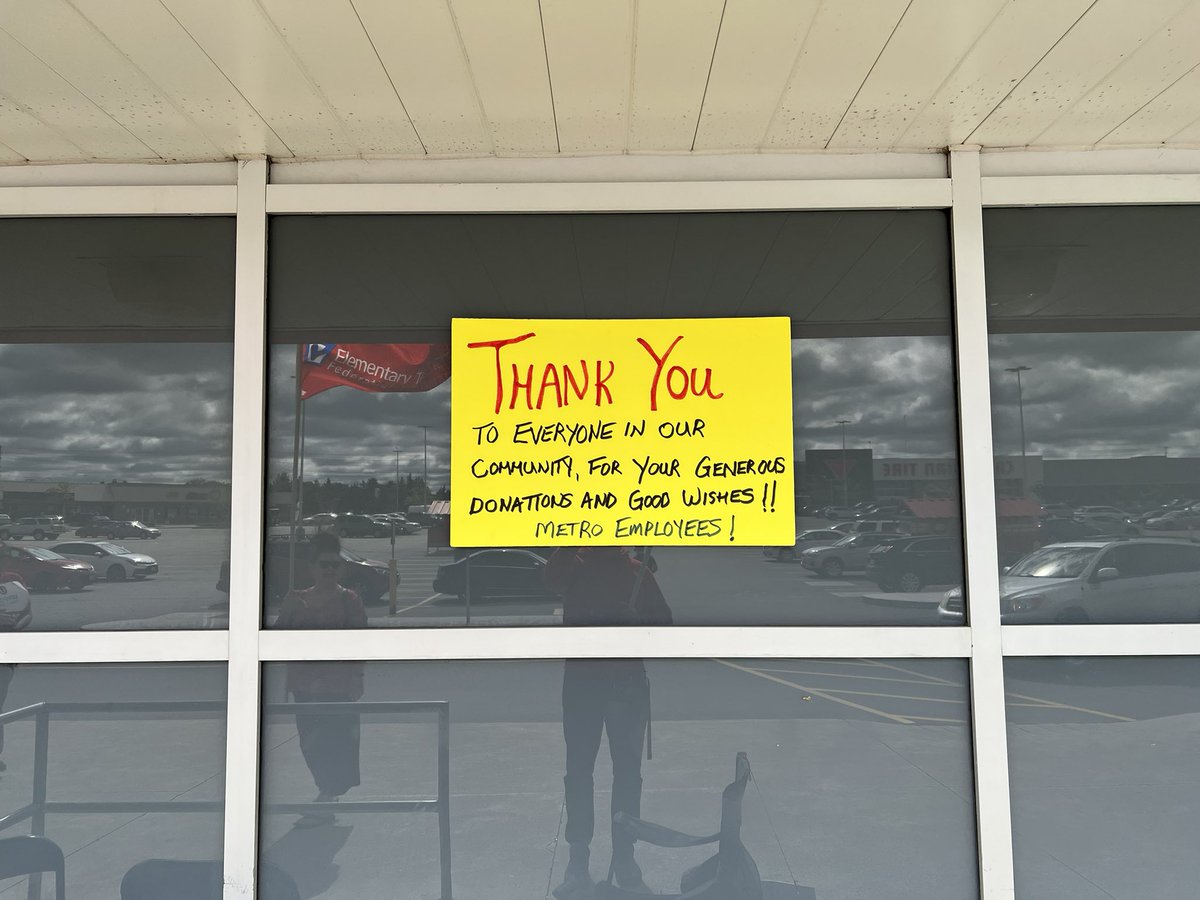 THANK YOU
TO EVERYONE IN OUR
COMMUNITY, FOR YOUR GENEROUS
DONATIONS AND GOOD WISHES!!
METRO EMPLOYEES!
Elementary
TIRE